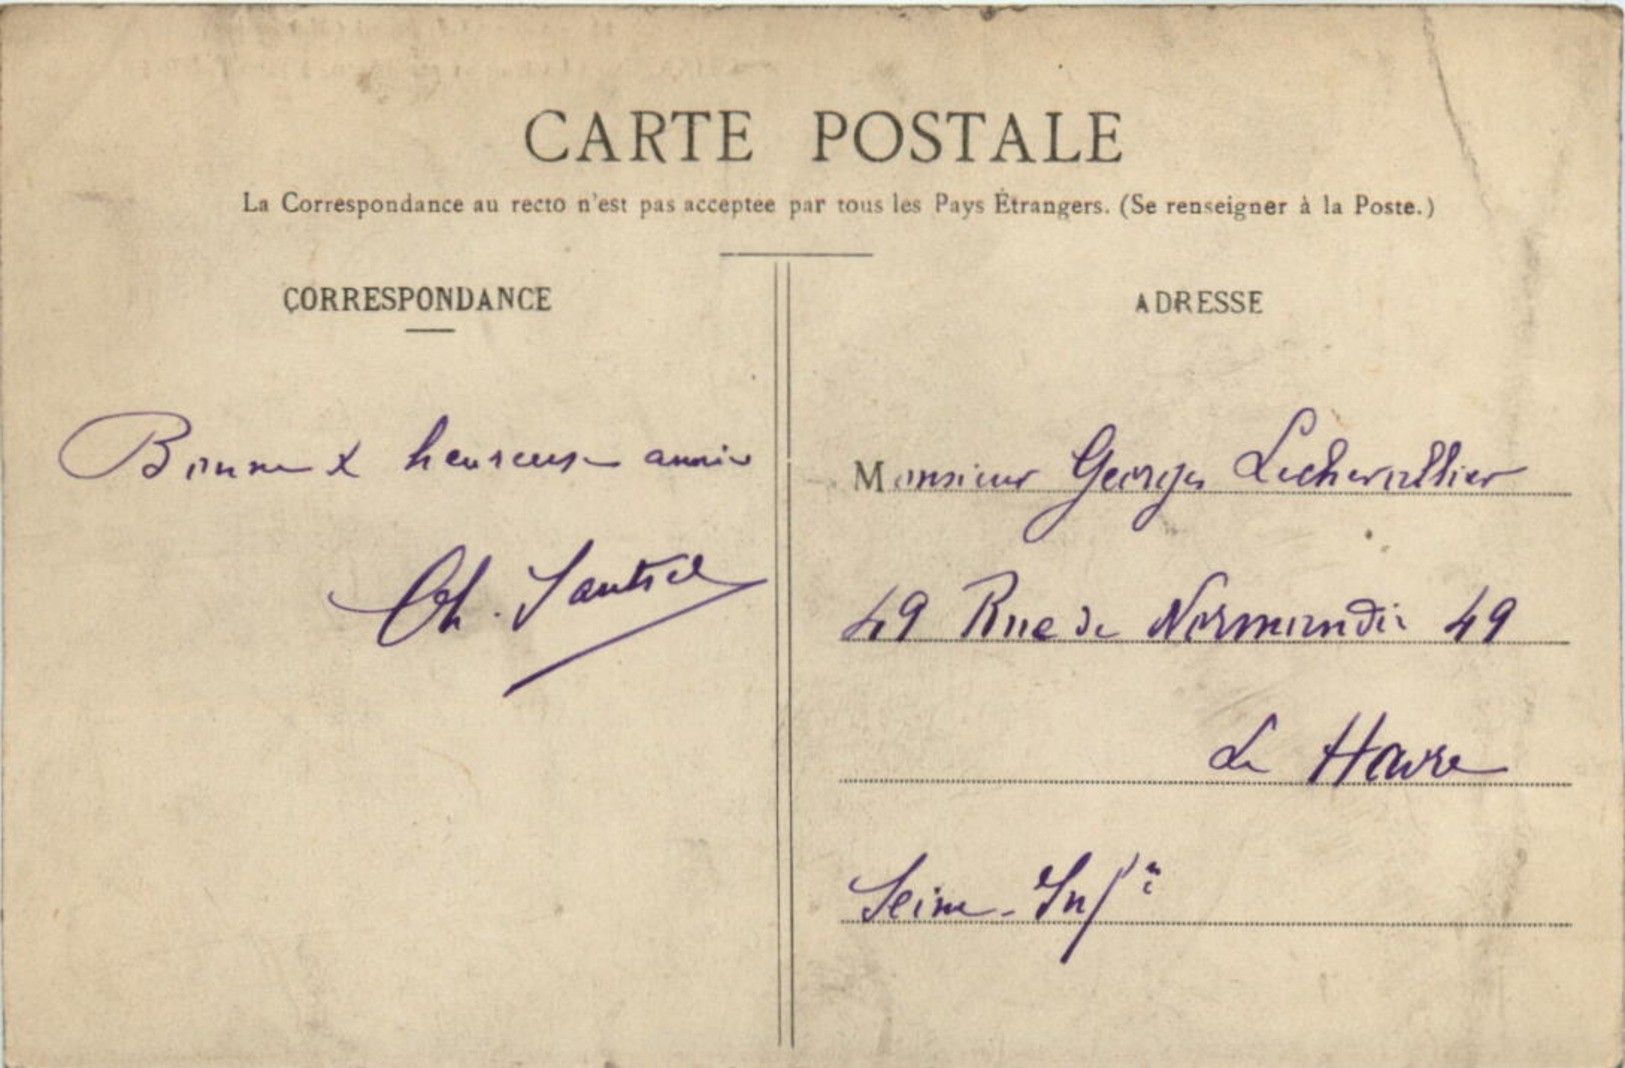 CARTE POSTALE
La Correspondance au recto n'est pas acceptée par tous les Pays Étrangers. (Se renseigner à la Poste.)
CORRESPONDANCE
Bonne & heureuse année
Ch.
ADRESSE
Monsieur Georges Lechevallier
49 Rue de Normandie 49
Le Havre
Seine-Infre